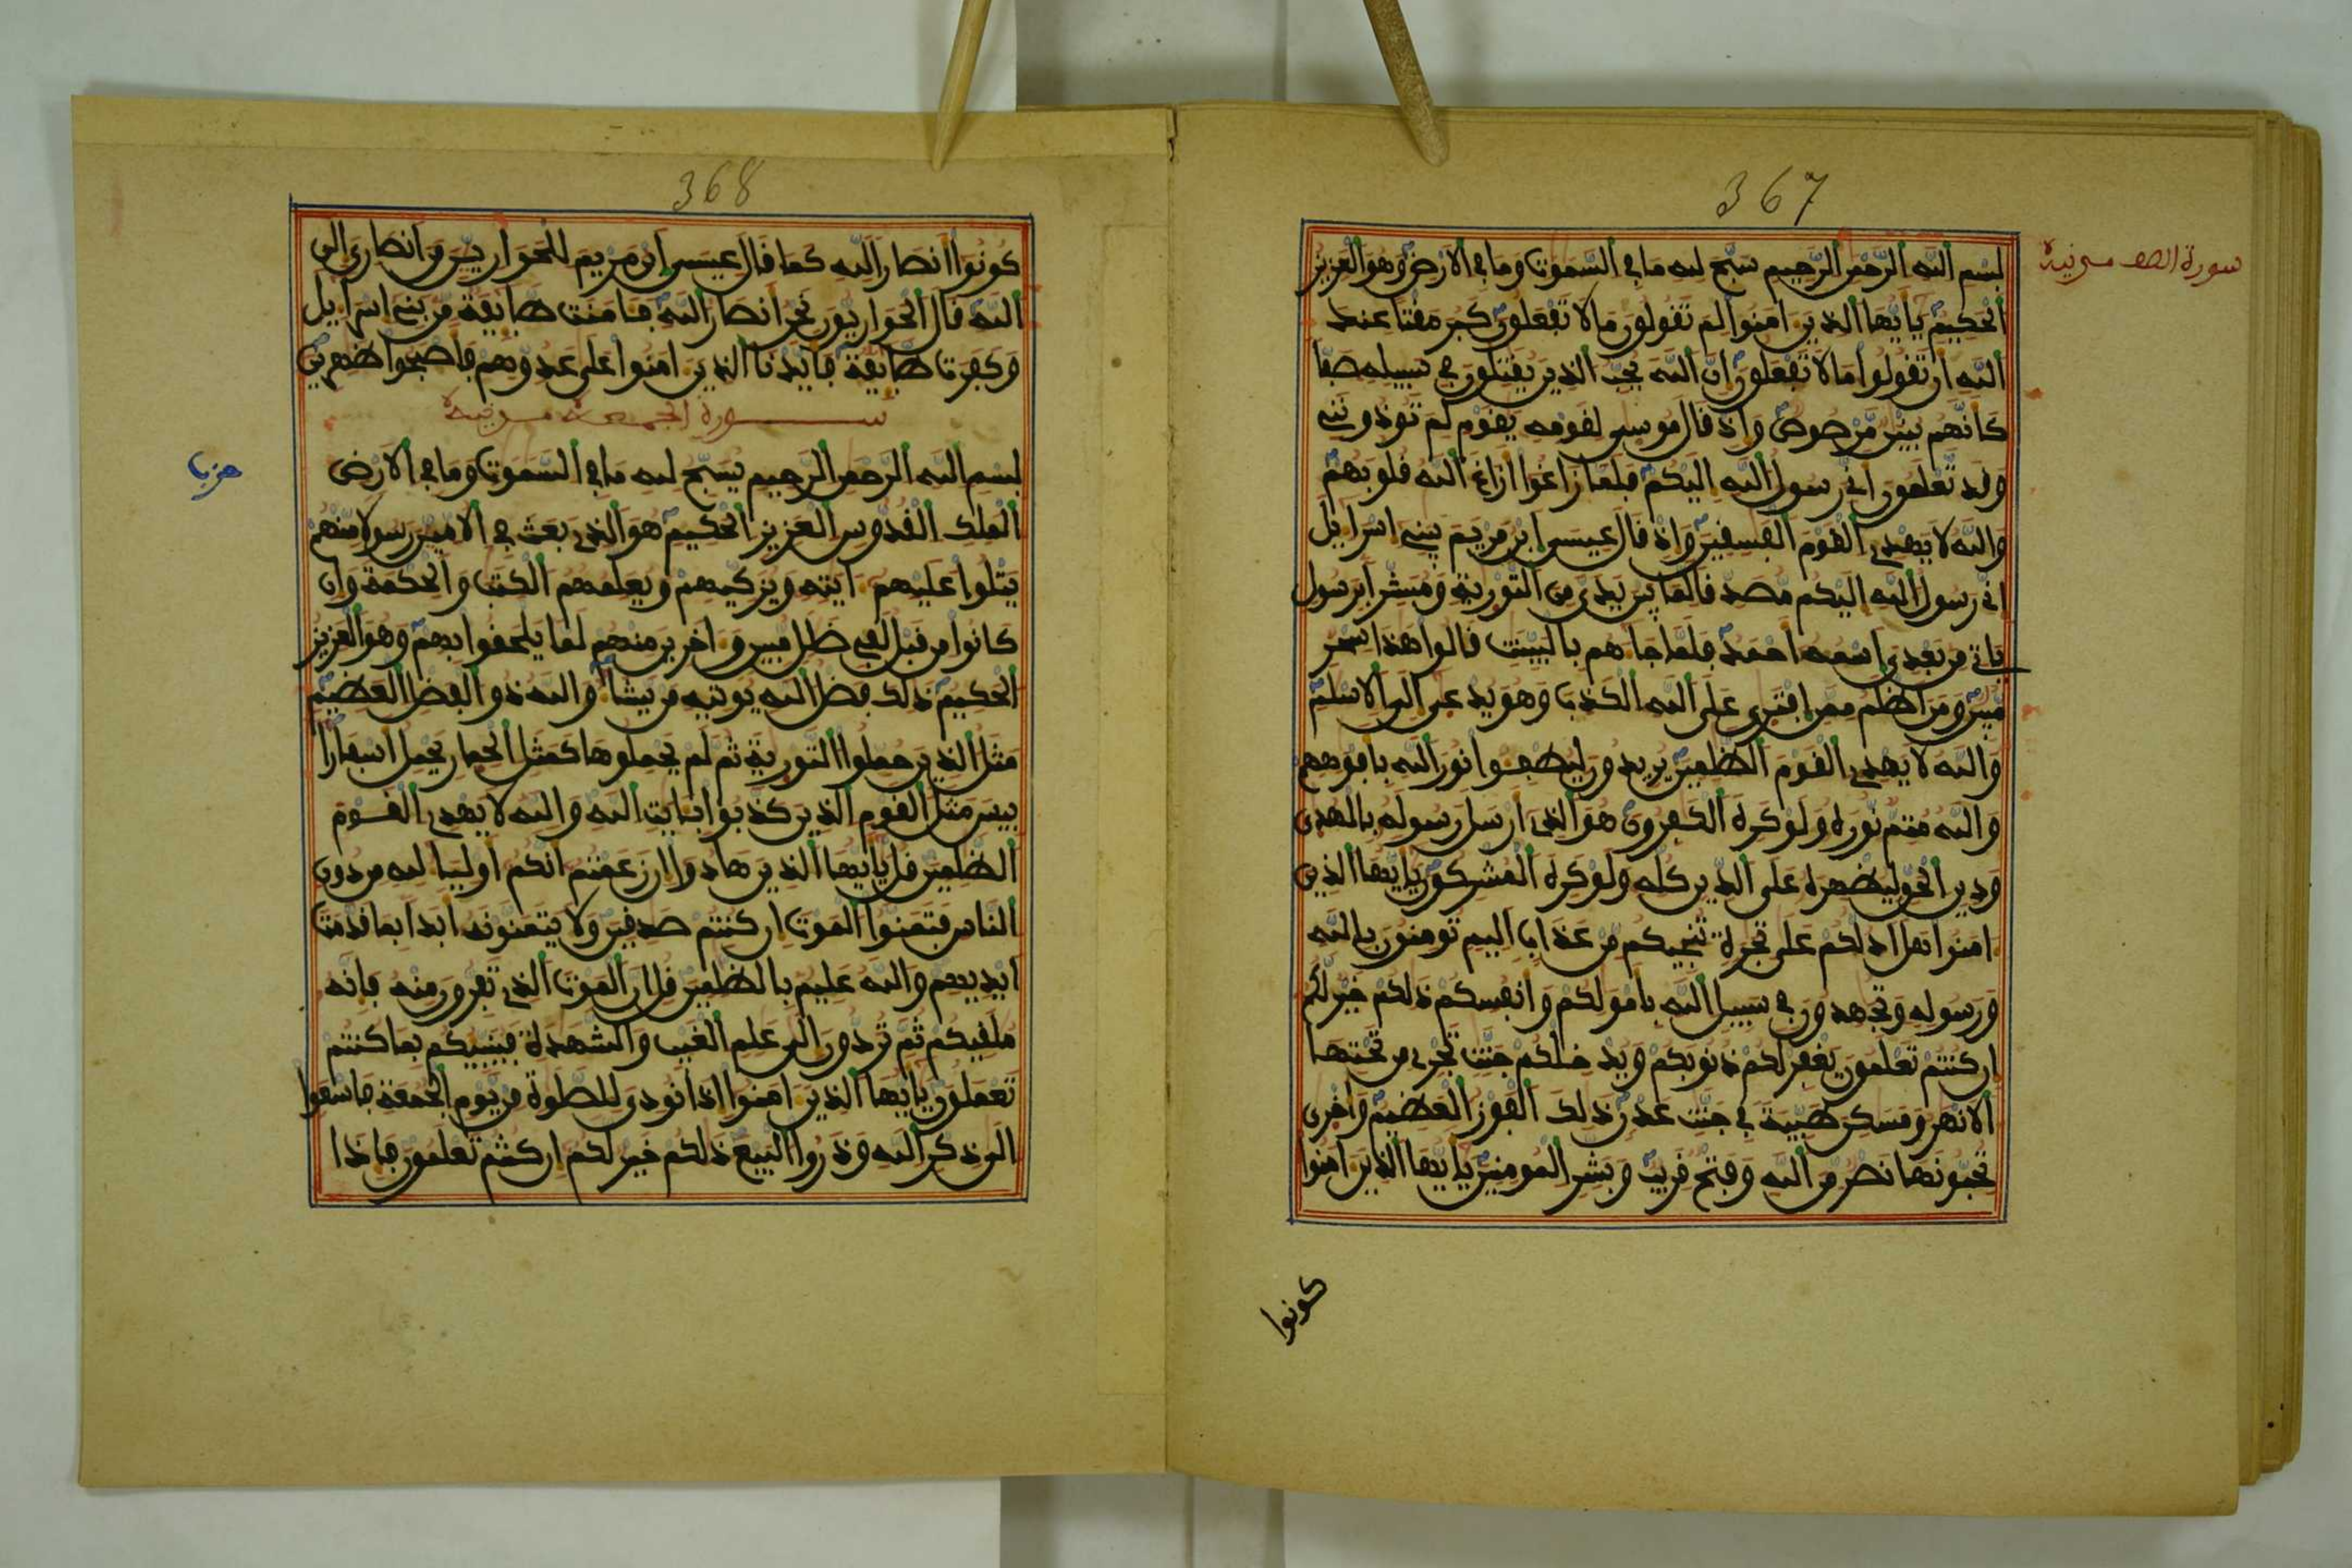 367
سورة الصف مدنية
بسم الله الرحمن الرحيم سبح لله ما في السموت وما في الارض وهو العزيز
الحكيم يايها الذين امنوا لم تقولون ما لا تفعلون كبر مقتا عند
الله ان تقولوا ما لا تفعلون ان الله يحب الذين يقتلون في سبيله صفا
كانهم بنين مرصوص واذ قال موسى لقومه يقوم لم توذونني
وقد تعلمون اني رسول الله اليكم فلما زاغوا ازاغ الله قلوبهم
والله لا يهدي القوم الفسقين واذ قال عيسى ابن مريم يبني اسراءيل
اني رسول الله اليكم مصدقا لما بين يدي من التورية ومبشرا برسول
ياتي من بعدي اسمه احمد فلما جاهم بالبينت قالوا هذا سحر
مبين ومن اظلم ممن افترى على الله الكذب وهو يدعى الى الاسلم
والله لا يهدي القوم الظلمين يريدون ليطفوا نور الله بافوههم
والله متم نوره ولو كره الكفرون هو الذي ارسل رسوله بالهدى
ودين الحق ليظهره على الدين كله ولو كره المشركون يايها الذين
امنوا هل ادلكم على تجرة تنجيكم من عذاب اليم تومنون بالله
ورسوله وتجهدون في سبيل الله بامولكم وانفسكم ذلكم خير لكم
ان كنتم تعلمون يغفر لكم ذنوبكم ويدخلكم جنت تجري من تحتها
الانهر ومسكن طيبة في جنت عدن ذلك الفوز العظيم واخرى
تحبونها نصر من الله وفتح قريب وبشر المومنين يايها الذين امنوا
كونوا
368
كونوا انصارا لله كما قال عيسى ابن مريم للحوارين من انصاري الى
الله قال الحواريون نحن انصار الله فامنت طايفة من بني اسراءيل
وكفرت طايفة فايدنا الذين امنوا على عدوهم فاصبحوا ظهرين
سورة الجمعة مدنية
بسم الله الرحمن الرحيم يسبح لله ما في السموت وما في الارض
حزب
الملك القدوس العزيز الحكيم هو الذي بعث في الامين رسولا منهم
يتلوا عليهم ايته ويزكيهم ويعلمهم الكتب والحكمة وان
كانوا من قبل لفي ضلل مبين واخرين منهم لما يلحقوا بهم وهو العزيز
الحكيم ذلك فضل الله يوتيه من يشا والله ذو الفضل العظيم
مثل الذين حملوا التورية ثم لم يحملوها كمثل الحمار يحمل اسفارا
بيس مثل القوم الذين كذبوا بايت الله والله لا يهدي القوم
الظلمين قل يايها الذين هادوا ان زعمتم انكم اوليا لله من دون
الناس فتمنوا الموت ان كنتم صدقين ولا يتمنونه ابدا بما قدمت
ايديهم والله عليم بالظلمين قل ان الموت الذي تفرون منه فانه
ملقيكم ثم تردون الى علم الغيب والشهدة فينبيكم بما كنتم
تعملون يايها الذين امنوا اذا نودي للصلوة من يوم الجمعة فاسعوا
الى ذكر الله وذروا البيع ذلكم خير لكم ان كنتم تعلمون فاذا